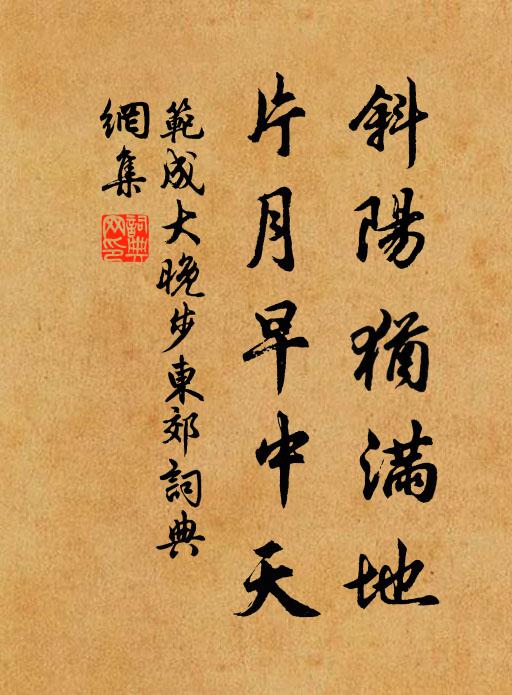 斜陽猶滿地
片月早中天
範成大晚步東郊詞典
網集
詞典
網印